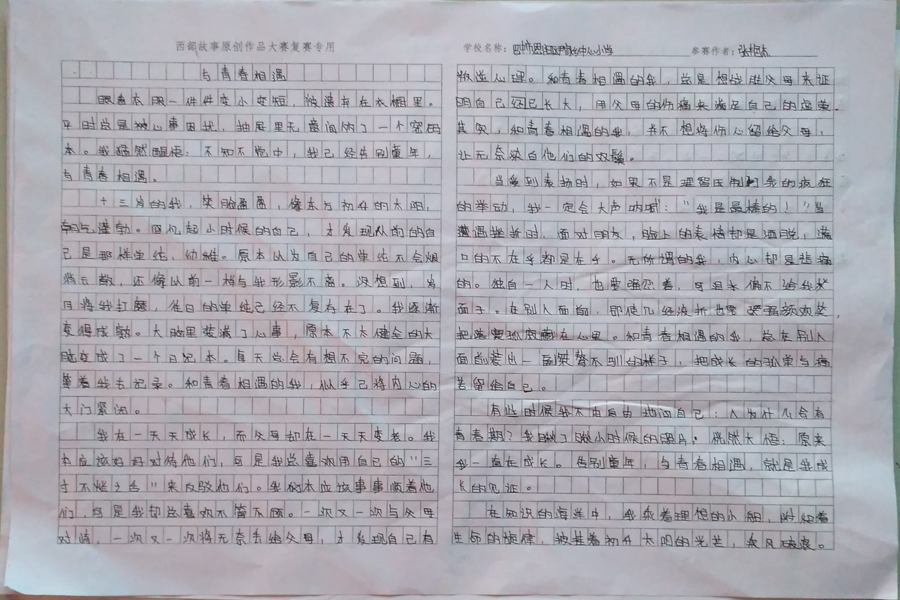 西部故事原创作品大赛复赛专用
与青春相遇
眼看衣服一件件变小变短，被遗弃在衣橱里。
平时总是被心事困扰，抽屉里无意间的了一个密码
本。我猛然醒悟：不知不觉中，我已经告别童年，
与青春相遇。
十三岁的我，笑脸盈盈，像东方初升的太阳，
朝气蓬勃。回忆起小时候的自己，才发现从前的自
己是那样单纯、幼稚。原本以为自己的单纯不会烟
消云散，还像以前一样与我形影不离。没想到，岁
月将我打磨，往日的单纯已经不复存在了。我逐渐
变得成熟。大脑里装满了心事，原本不太健全的大
脑变成了一个日记本。每天总会有想不完的问题，
等着我去记录。和青春相遇的我，似乎已将内心的
大门紧闭。
我在一天天成长，而父母却在一天天变老。我
本应该好好对待他们，可是我总喜欢用自己的“三
寸不烂之舌”来反驳他们。我本应该事事顺着他
们，可是我却总喜欢不管不顾。一次又一次与父母
对峙，一次又一次将无奈丢给父母，才发现自己有
学校名称：中心小学
参赛作者：张
叛逆心理。和青春相遇的我，总是想这让父母来证
明自己已经长大，用父母的伤痛来满足自己的虚荣。
其实，和青春相遇的我，并不想将伤心留给父母，
让无奈染白他们的双鬓。
当受到表扬时，如果不是理智压制了我的疯狂
的举动，我一定会大声呐喊：“我是最棒的！”当
遭遇挫折时，面对朋友，脸上的表情却是洒脱，满
口的不在乎都是在乎。无所谓的我，内心却是悲痛
的。独自一人时，也要强忍着，可泪水偏不给我
面子。在别人面前，即使几经波折也要强颜欢笑，
把落寞孤寂藏在心里。和青春相遇的我，总在别人
面前装出一副桀骜不驯的样子，把成长的孤单与痛
苦留给自己。
有些时候我不由自由地问自己：人为什么会有
青春期？我瞅了瞅小时候的照片，恍然大悟：原来
我一直在成长。告别童年，与青春相遇，就是我成
长的见证。
在知识的海洋中，我乘着理想的小船，附和着
生命的旋律，披着初升太阳的光芒，乘风破浪。